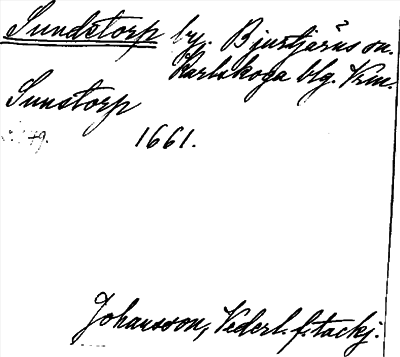 Sundstorp by. Bjurtjärns sn.
Karlskoga blg. Vrm.
Sunstorp
1661.
Johansson, Vederl. f. tackj.